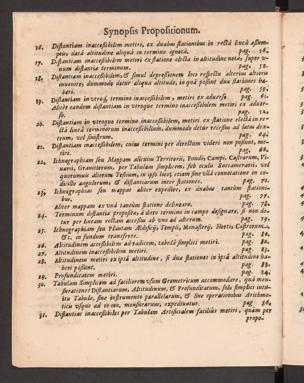 Synopsis Propositionum.
16. Distantiam inaccessibilem metiri, ex duabus stationibus in rectâ lineâ assumptis, datâ altitudine aliquâ in termino ignoto. pag. 56.
17. Distantiam inaccessibilem metiri ex statione electa in altitudine notâ, super unum distantiæ terminum. pag. 58.
18. Distantiam inaccessibilem, & simul depressionem loci respectu alterius altioris invenire, dummodo detur aliqua altitudo, in quâ possint duæ stationes haberi. pag. 59.
19. Distantiam in utroq; termino inaccessibilem metiri ex adverso. pag. 61.
Aliter eandem distantiam in utroque termino inaccessibilem metiri ex adverso. pag. 62.
20. Distantiam in utroque termino inaccessibilem, metiri ex statione electa in rectâ lineâ terminorum inaccessibilium, dummodo detur recessus ad latus dextrum, vel sinistrum. pag. 64.
21. Distantiam inaccessibilem, cuius termini per directum videri non possunt, metiri. pag. 66.
22. Ichnographiam seu Mappam alicuius Territorii, Fundi, Campi, Castrorum,
per Tabulam simplicem, sub oculis
in ipsis locis, etiam sine ulla connotatione in
angulorum, & distantiarum inter stationes. pag.
23. Ichnographiam seu mappam aliter expedire, ex duabus tantùm stationibus. pag. 77.
Aliter mappam ex una tantùm statione delineare. pag. 78.
24. Terminum distantiæ propositæ, à dato termino in campo assignare, si non detur per lineam rectam accessus ab uno ad alterum. pag. 79.
25. Ichnographiam seu Plantam Ædificij, Templi, Monasterij, Horti, Castrorum, &c. in fundum transferre. pag. 80.
26. Altitudinem accessibilem ad radicem, tabellâ simplici metiri. pag. 80.
27. Altitudinem inaccessibilem metiri. pag. 82.
28. Altitudinem metiri ex ipsâ altitudine, si duæ stationes in ipsâ altitudine haberi possint. pag. 83.
29. Profunditatem metiri. pag. 84.
30. Tabulam Simplicem ad faciliorem usum Geometricum accommodare, quâ mensurationes Distantiarum, Altitudinum, & Profunditatum, solo simplici intuitu Tabulæ, sine instrumento parallelarum, & sine operationibus Arithmeticis usque ad 10 000, mensurarum, expediuntur. pag. 86.
31. Distantias inaccessibiles per Tabulam Artificialem faciliùs metiri, quàm per propo-